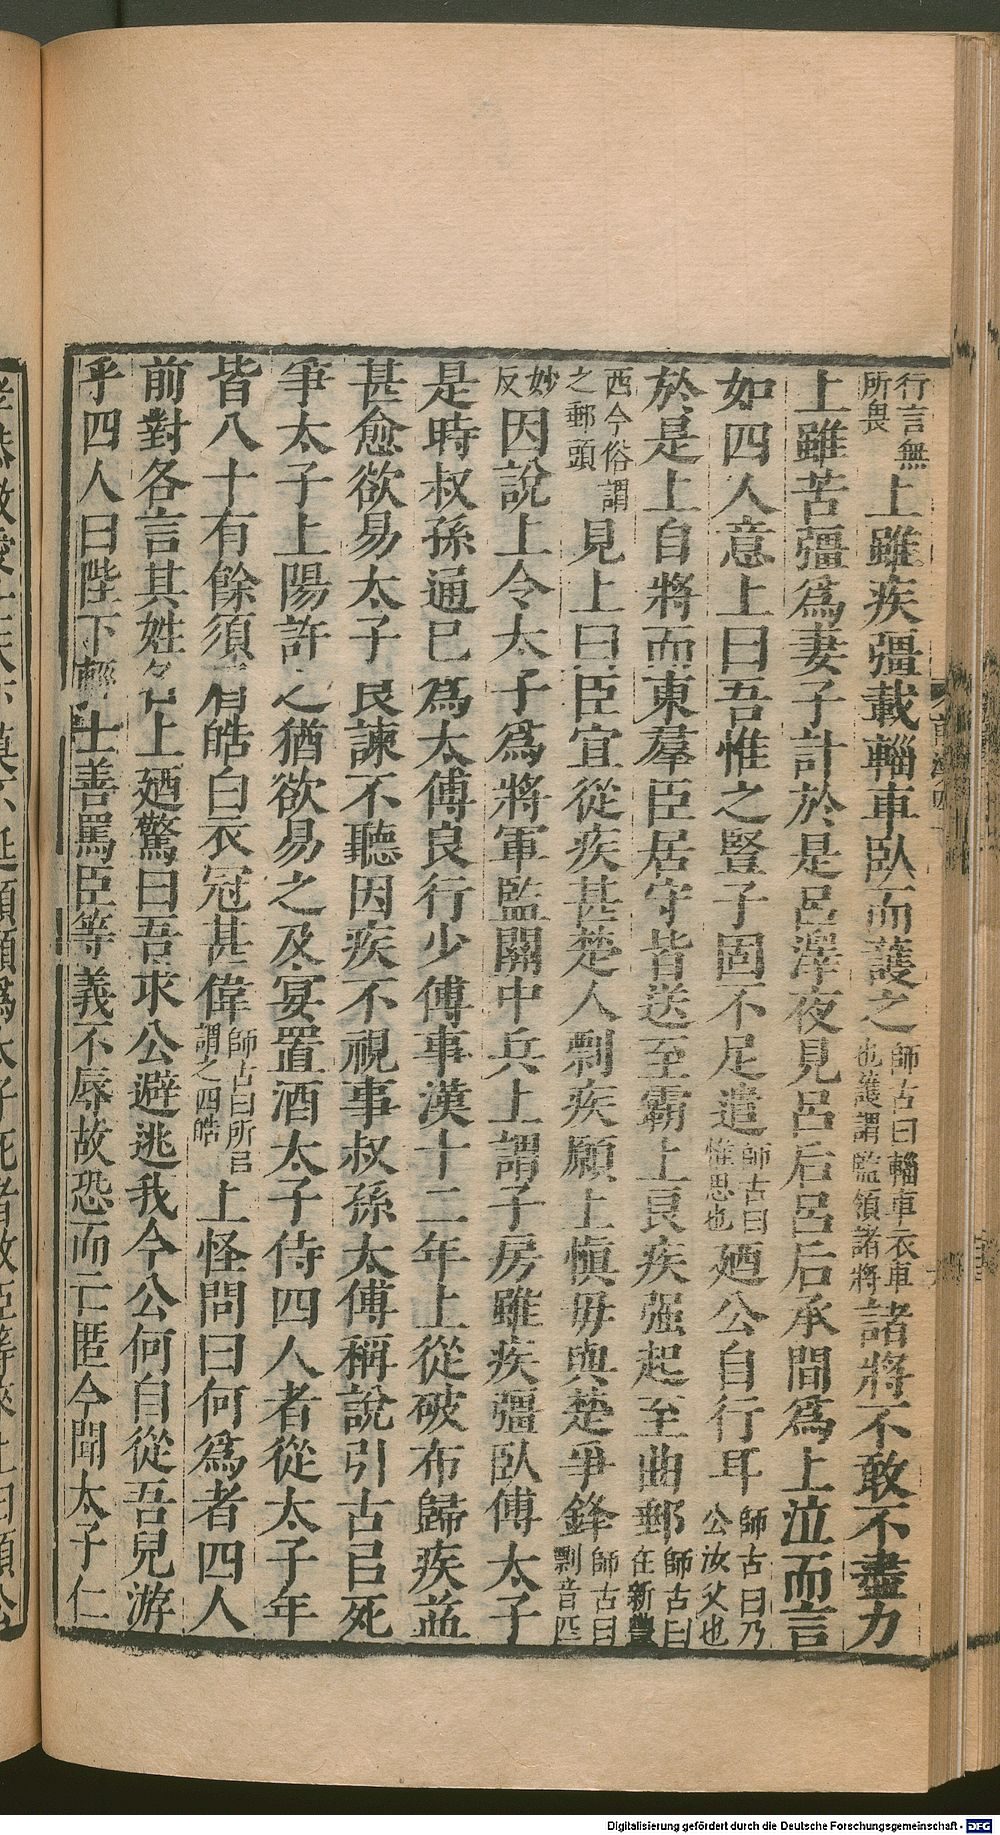 行言無所畏上雖疾彊載輜車臥而護之師古曰輜車衣車也護謂監領諸將諸將不敢不盡力
上雖苦彊爲妻子計於是呂澤夜見呂后呂后承間爲上泣而言
如四人意上曰吾惟之豎子固不足遣師古曰惟思也廼公自行耳師古曰乃公汝父也
於是上自將而東羣臣居守皆送至霸上良疾强起至曲郵師古曰在新豐
西今俗謂之郵頭見上曰臣宜從疾甚楚人剽疾願上愼毋與楚爭鋒師古曰剽音匹
妙反因說上令太子爲將軍監關中兵上謂子房雖疾彊臥傅太子
是時叔孫通已爲太傅良行少傅事漢十二年上從破布歸疾益
甚愈欲易太子良諫不聽因疾不視事叔孫太傅稱說引古㠯死
爭太子上陽許之猶欲易之及宴置酒太子侍四人者從太子年
皆八十有餘須眉皓白衣冠甚偉師古曰所㠯謂之四皓上怪問曰何爲者四人
前對各言其姓名上廼驚曰吾求公避逃我今公何自從吾兒游
乎四人曰陛下輕士善罵臣等義不辱故恐而亡匿今聞太子仁
Digitalisierung gefördert durch die Deutsche Forschungsgemeinschaft - DFG